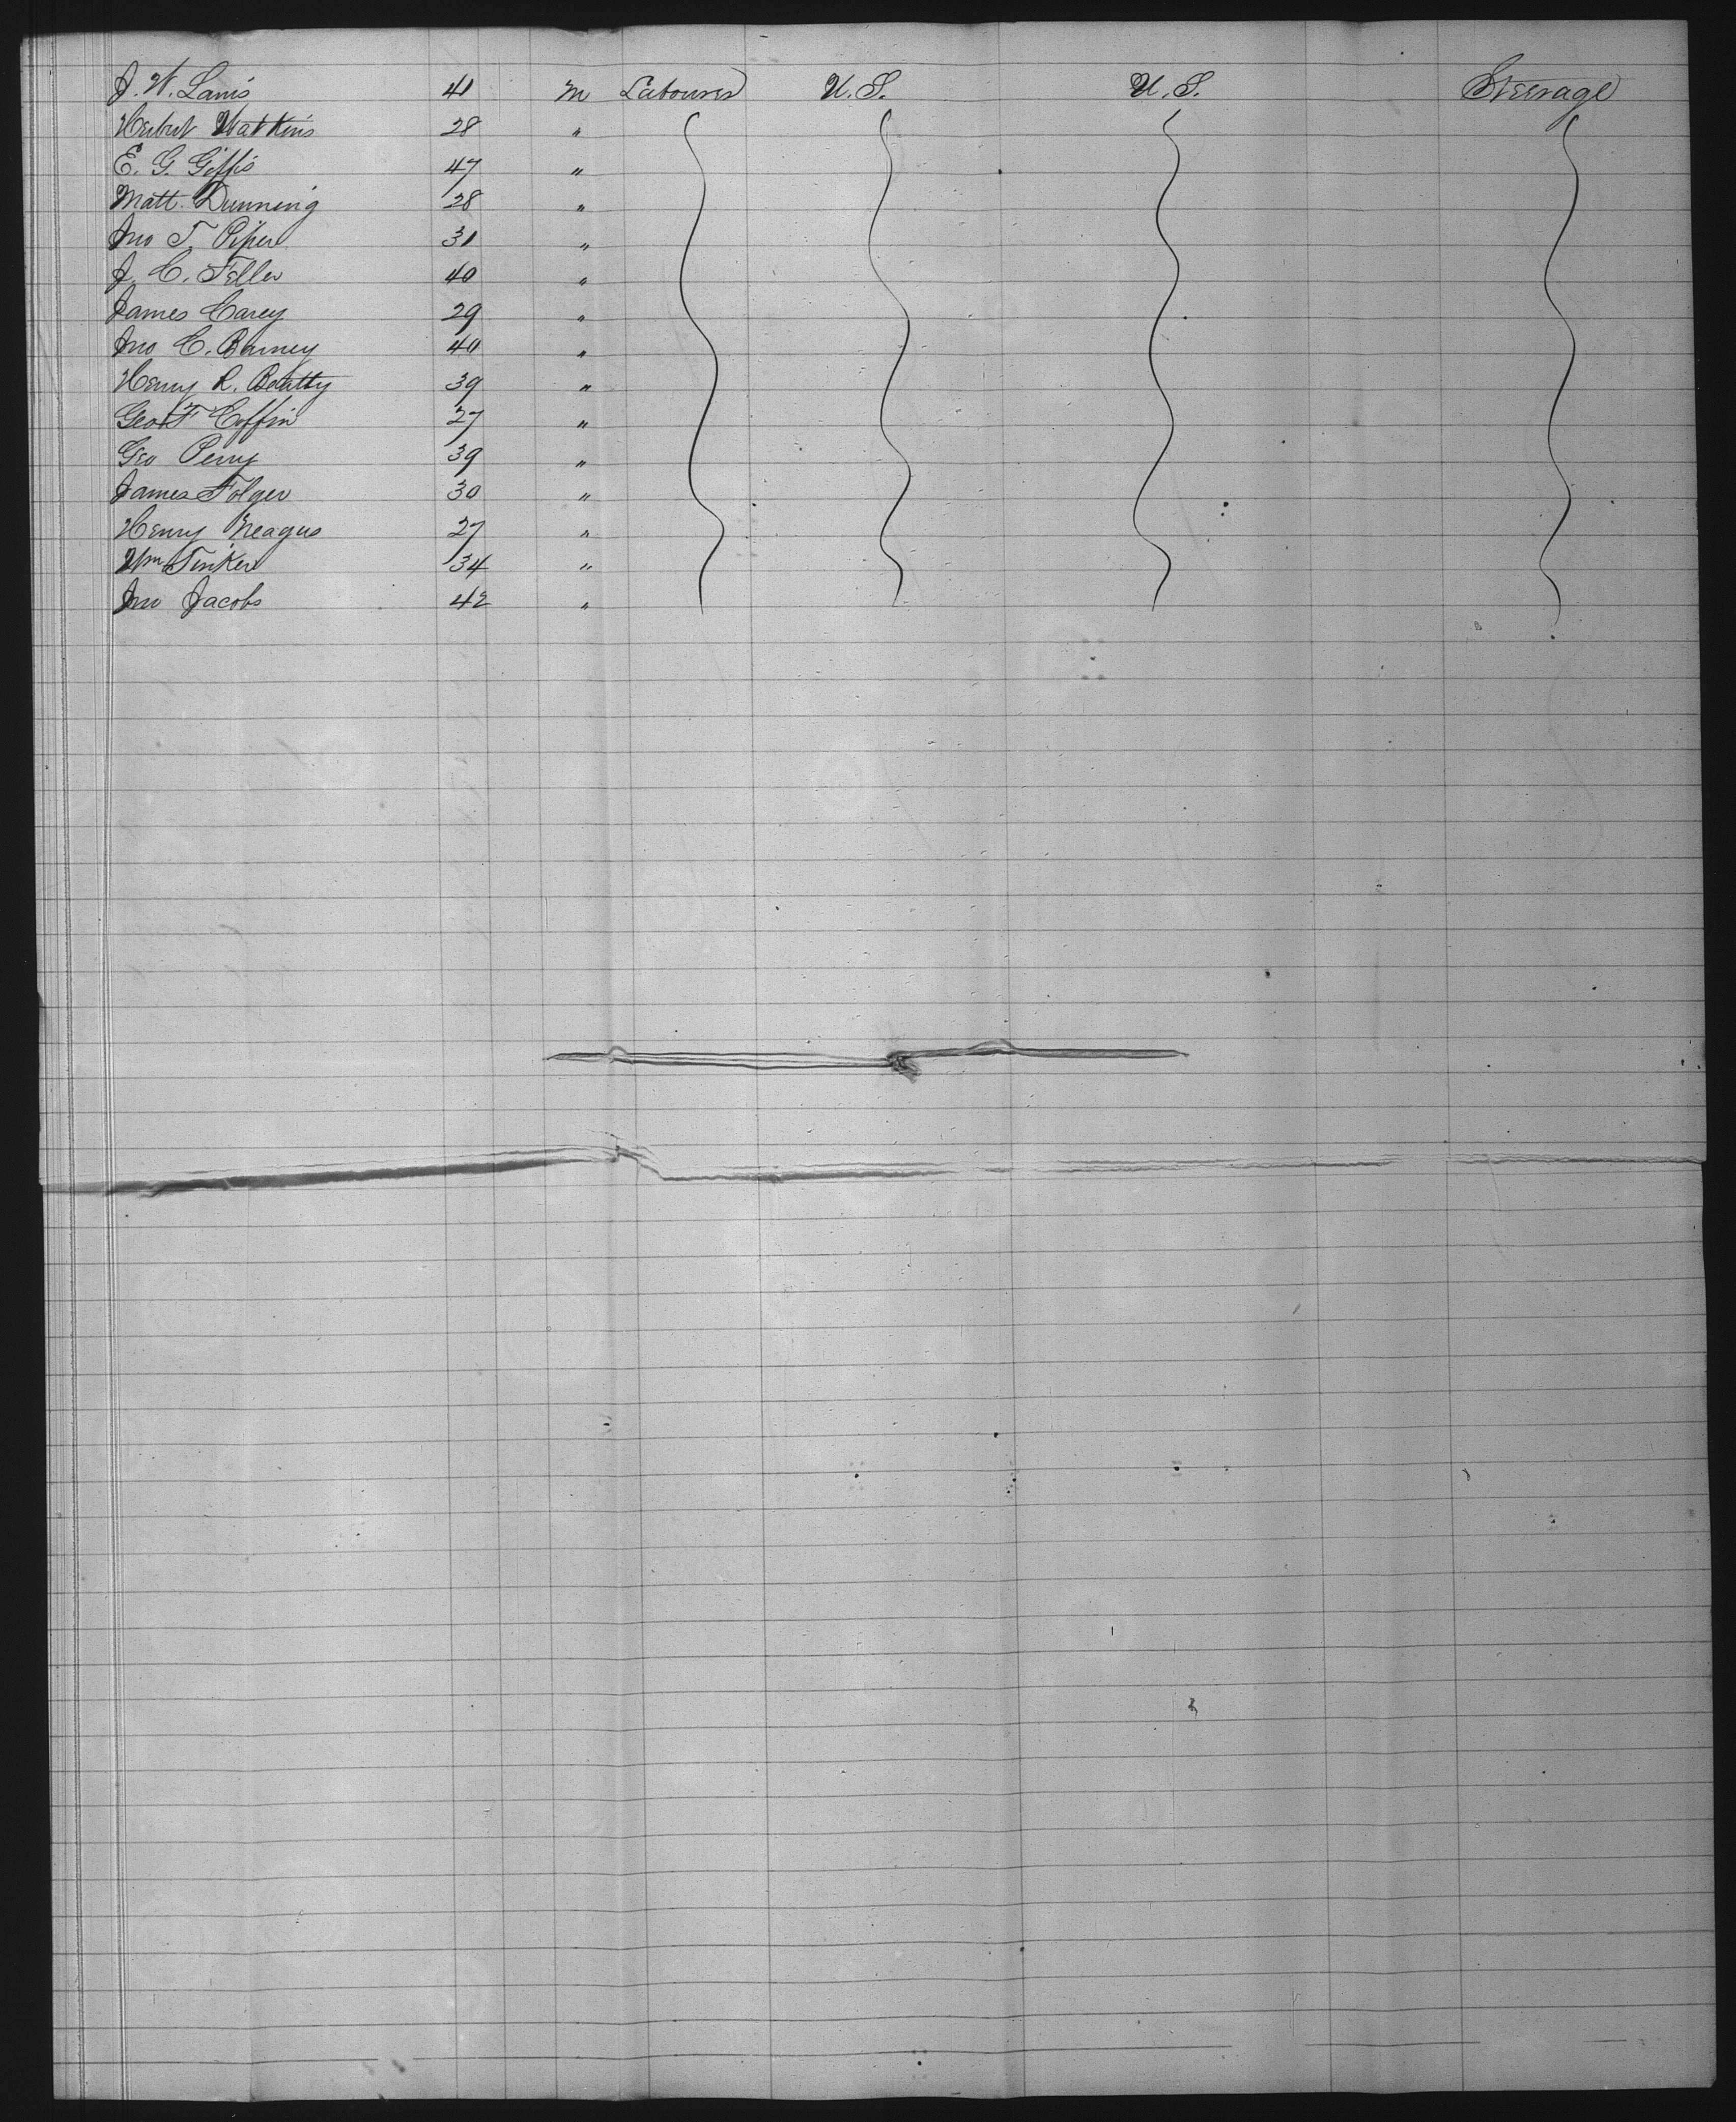 J. W. Lanis 41 m Labourer U.S. U.S. Steerage
Herbert Watkins 28 "
E. G. Giffis 47 "
Matt. Dunning 28 "
Jno T. Piper 31 "
J. C. Feller 40 "
James Carey 29 "
Jno C. Barney 40 "
Henry R. Beatty 39 "
Geo F Coffin 27 "
Geo Perry 39 "
James Folger 30 "
Henry Neagus 27 "
Wm Tinker 34 "
Jno Jacobs 42 "